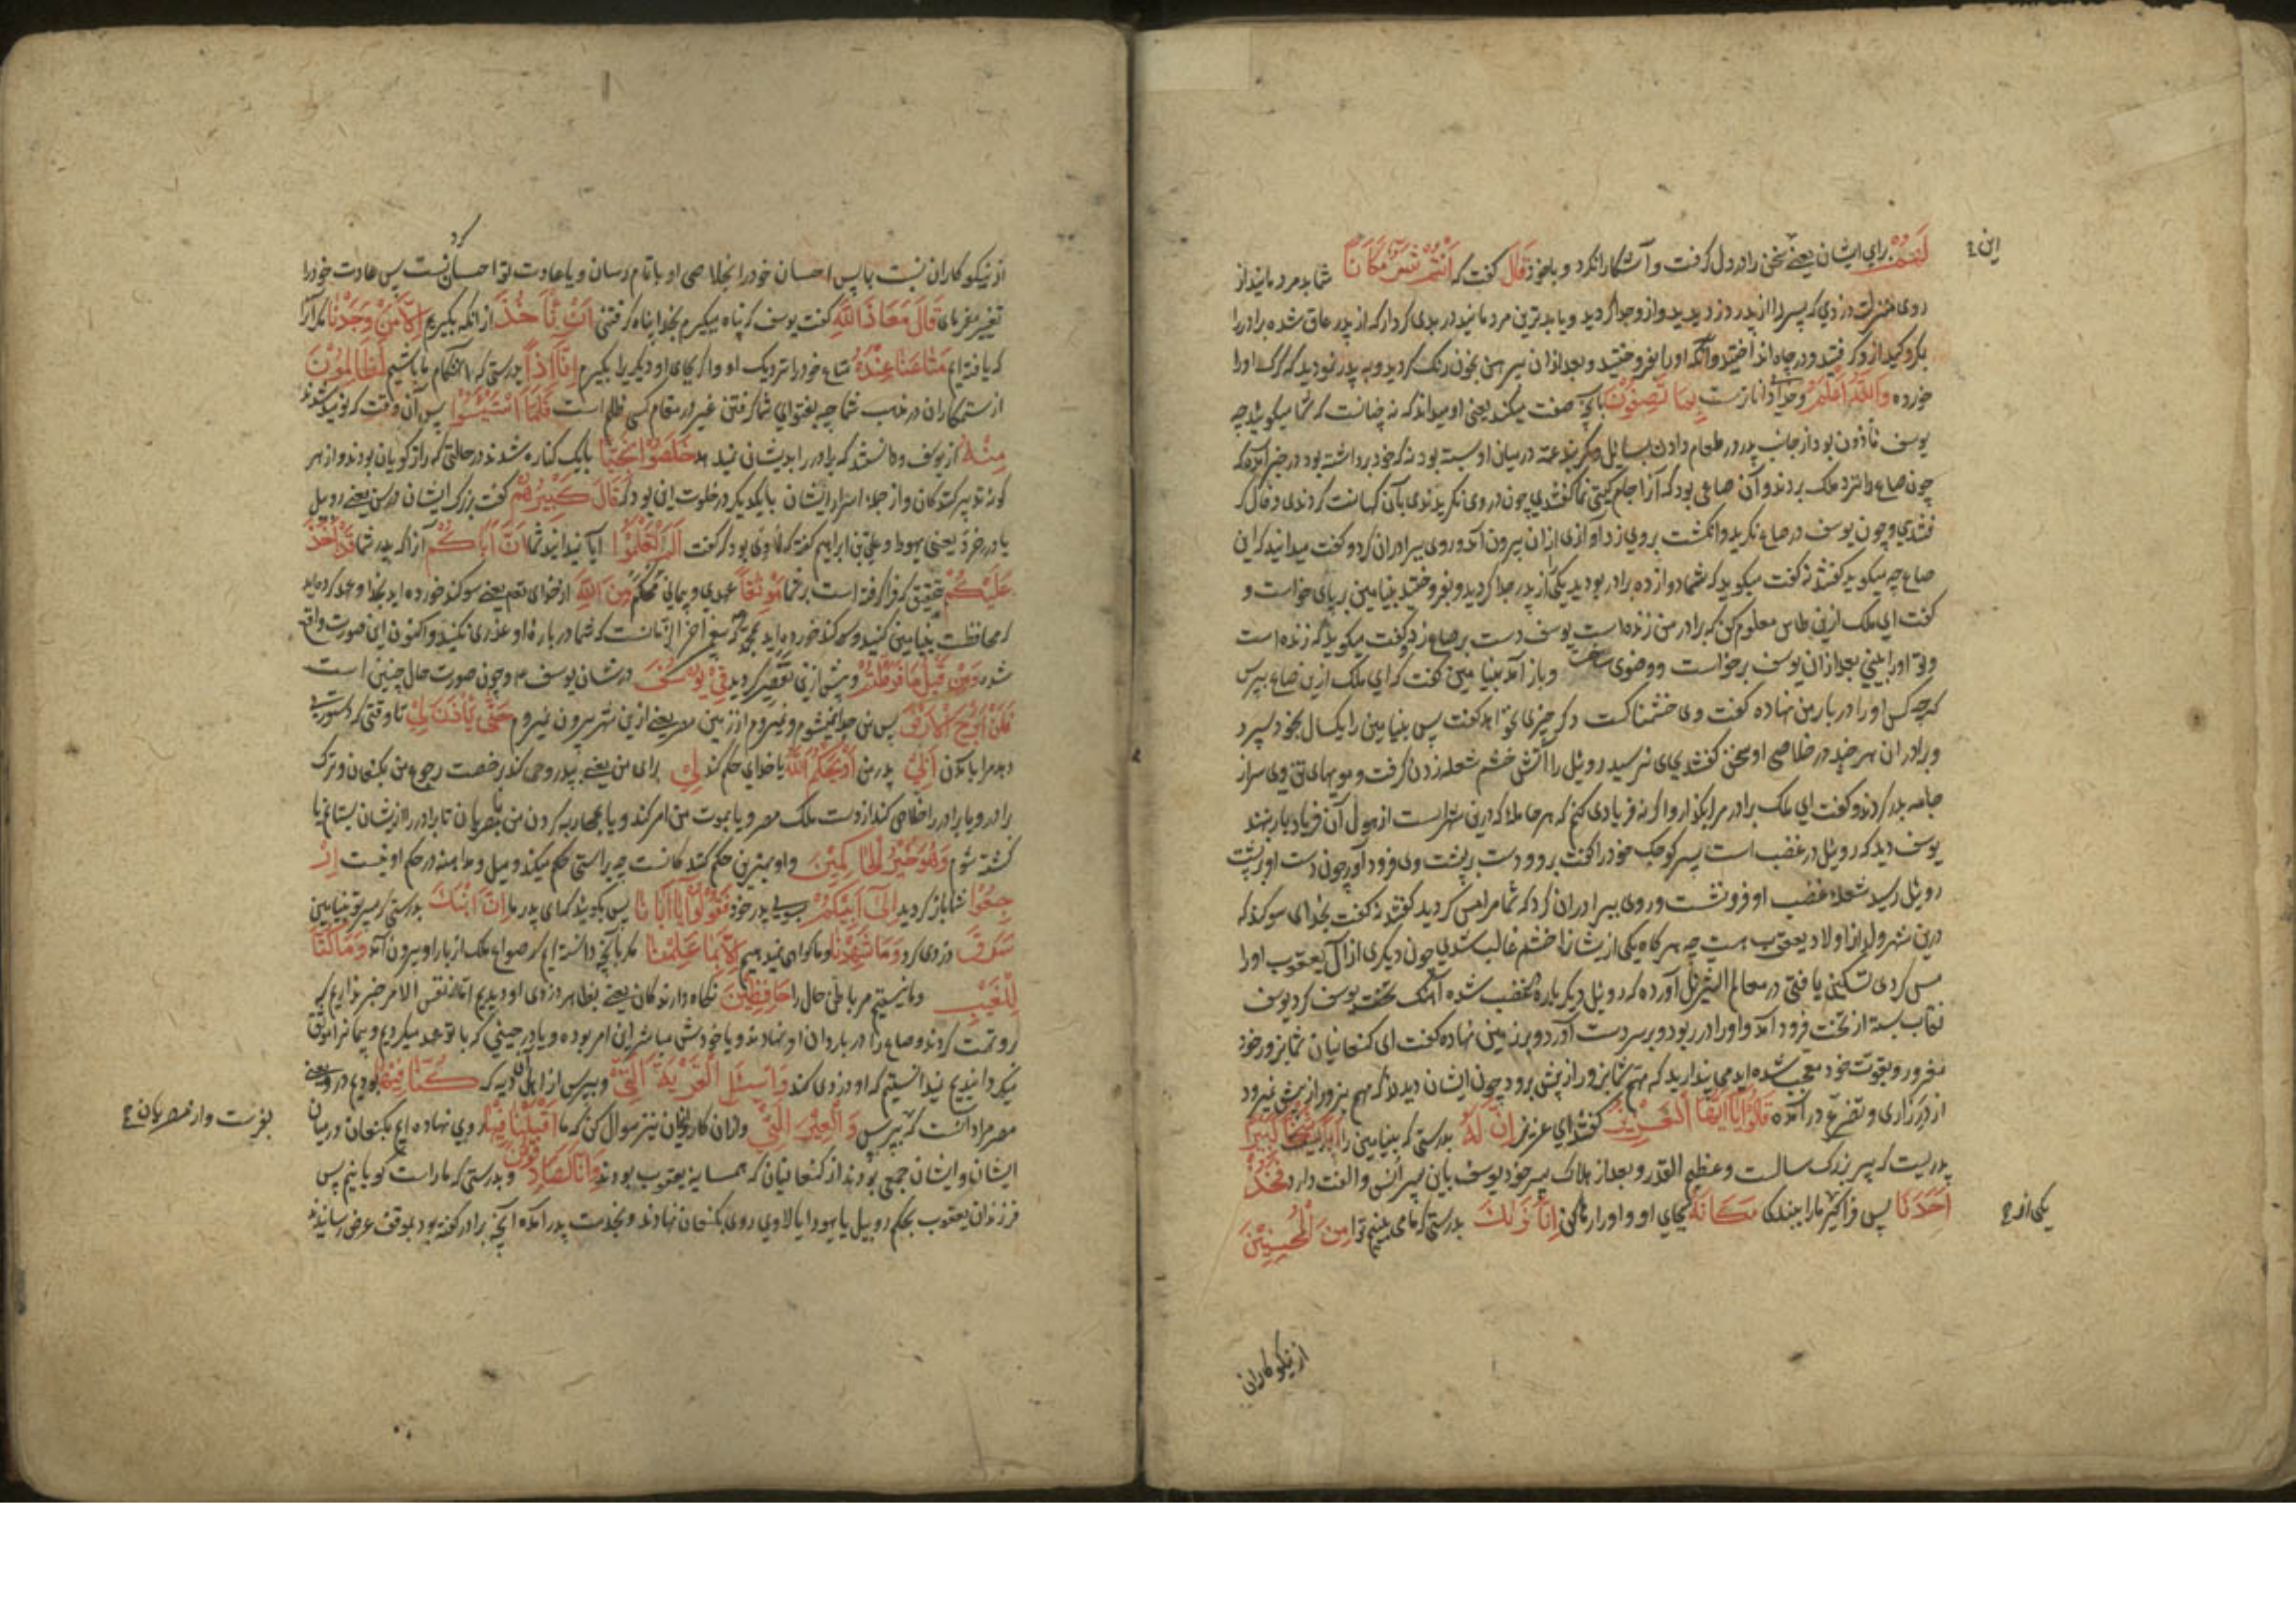 لَهُمْ برای ایشان یعنے سخن را در دل گرفت و آشکارا نکرد و با خود قَالَ گفت که اَنْتُمْ شَرٌّ مَكَانًا شما بدمردمانید از
این ح
روی منزلت دزدی که پسر را از پدر دزدیدید و از وجدا کردید و یا بدترین مردمانید در بدی کردار که از پدر عاق شده برادر را
بکر و کید از و گرفتید و در چاه انداختید وآنکه او را بفروختید و بعد از آن پیرهن بخون رنگ کردید و به پدر نمودید که گرگ او را
خورده وَاللّٰهُ اَعْلَمُ و خدای داناترست بِمَا تَصِفُوْنَ بآنچه صفت میکنید یعنی او میداند که نه چنانست که شما میگویید چه
یوسف مأذون بود از جانب پدر در طعام دادن بسایل و کمربند عمه در میان او بسته بود نه که خود برداشته بود در خبر آمده که
چون صاع را نزد ملک بردند و آن صاعی بود که آنرا جام گیتی نما گفتندی چون در وی نگریدندی بآن کهانت کردندی و فال گر
فتندی و چون یوسف در صاع نگرید و انگشت بروی زد آوازی از آن بیرون آمد و روی ببرادران کرد و گفت میدانید که این
صاع چه میگوید گفتند نه گفت میگوید که شما دوازده برادر بودید یکی را از پدر جدا کردید و بفروختید بنیامین بر پای خواست و
گفت ای ملک ازین طاس معلوم کن که برادر من زنده است یوسف دست بر صاع زد و گفت میگوید که زنده است
و تو او را ببینی بعد از آن یوسف برخواست و وضوی ساخت و باز آمد بنیامین گفت که ای ملک ازین صاع بپرس
که چه کس او را در بار من نهاده گفت وی خشمناکست دگر چیزی نخواهد گفت پس بنیامین را یکسال بخود سپرد
و برادران هر چند در خلاصی او سخن گفتند بجای نرسید روئیل را آتش خشم شعله زدن گرفت و مویهای تن وی سر از
جامه بدر کردند و گفت ای ملک برادر مرا بگذار و اگر نه فریادی کنم که هر حامله که درین شهرست از هول آن فریاد بار بنهند
یوسف دید که روئیل در غضب است پسر کوچک خود را گفت برو و دست بر پشت وی فرود آور چون دست او بر پشت
روئیل رسید شعله غضب او فرو نشست و روی ببرادران کرد که شما مرا مس کردید گفتند نه گفت بخدای سوگند که
درین شهر ولد از اولاد یعقوب هست چه هرگاه یکی از یشانرا خشم غالب شدی چون دیگری از آل یعقوب او را
مس کردی تسکین یافتی در معالم التنزیل آورده که روئیل دیگر باره غضب شده آهنگ تخت یوسف کرد یوسف
نقاب بسته از تخت فرود آمد و او را در ربود و بر سر دست آورد و بر زمین نهاده گفت ای کنعانیان شما بزور خود
مغرور و بقوت خود معجب شده اید می پندارید که مهم شما بزور از پیش برود چون ایشان دیدند که مهم بزور از پیش نمیرود
از در زاری و تضرع در آمده قَالُوْا يَا اَيُّهَا الْعَزِيْزُ گفتند ای عزیز اِنَّ لَهُ بدرستی که بنیامین را اَبًا شَيْخًا كَبِيْرًا
پدریست که پیر بزرگ سالست و عظیم القدر و بعد از هلاک پسر خود یوسف باین پسر انس و الفت دارد فَخُذْ
اَحَدَنَا پس فرا گیر ما را ببندگی مَكَانَهُ بجای او و او را رها کن اِنَّا نَرٰىكَ بدرستی که ما می بینیم ترا مِنَ الْمُحْسِنِيْنَ
یکی از ح
از نیکوکاران

از نیکوکاران نسبت بما پس احسان خود را بخلاصی او باتمام رسان و یا عادت تو احسانست پس عادت خود را
تغییر مفرمای قَالَ مَعَاذَ اللّٰهِ گفت یوسف که پناه میگیرم بخدا پناه گرفتنی اَنْ نَّأْخُذَ از آنکه بگیریم اِلَّا مَنْ وَجَدْنَا مگر آنرا
که یافته ایم مَتَاعَنَا عِنْدَهُ متاع خود را نزدیک او و اگر بجای او دیگری را بگیرم اِنَّا اِذًا بدرستی که ما آنهنگام باشیم لَظَالِمُوْنَ
از ستمکاران در مذهب شما چه بفتوای شما گرفتن غیر در مقام کسی ظلم است فَلَمَّا اسْتَيْئَسُوْا پس آن وقت که نومید شدند
مِنْهُ از یوسف و دانستند که برادر را بدیشان نمیدهد خَلَصُوْا نَجِيًّا بایک کناره شدند در حالتی که راز گویان بودند و از هر
گونه تدبیر کنندگان و از جمله اسرار ایشان بایکدیگر در خلوت این بود که قَالَ كَبِيْرُهُمْ گفت بزرگ ایشان در سن یعنے روبیل
یا در خرد یعنی یهودا و علی بن ابراهیم گفته که لاوی بود که گفت اَلَمْ تَعْلَمُوْا آیا نمیدانید شما اَنَّ اَبَاكُمْ آنرا که پدر شما قَدْ اَخَذَ
عَلَيْكُمْ بتحقیق که فرا گرفته است بر شما مَوْثِقًا عهدی و پیمانی محکم مِنَ اللّٰهِ از خدای تعم یعنے سوگند خورده اید بخدا و عهد کرده اید
که محافظت بنیامین کنید و سوگند خورده اید بمحمد که پیغمبر آخر الزمانست که شما در باره او غدری نکنید و اکنون این صورت واقع
شد وَمِنْ قَبْلُ مَا فَرَّطْتُمْ و پیش ازین تقصیر کردید فِيْ يُوْسُفَ در شان یوسف ۴ و چون صورت حال چنین است
فَلَنْ اَبْرَحَ الْاَرْضَ پس من جدا نمیشوم و نمیروم از زمین مصر یعنے ازین شهر بیرون نمیروم حَتّٰى يَأْذَنَ لِيْ تا وقتی که دستوری
دهد مرا بآمدن اَبِيْ پدر من اَوْ يَحْكُمَ اللّٰهُ یا خدای حکم کند لِيْ برای من یعنے به پدر وحی کند برخصت رجوع من بکنعان و ترک
برادر و یا برادر را خلاص کند از دست ملک مصر و یا بموت من امر کند و یا بمحاربه کردن من با مصریان تا برادر را از یشان بستانم یا
کشته شوم وَهُوَ خَيْرُ الْحَاكِمِيْنَ و او بهترین حکم کنندگانست چه براستی حکم میکند و میل و مداهنه در حکم او نیست اِرْ
جِعُوْا شما باز گردید اِلٰى اَبِيْكُمْ بسوی پدر خود فَقُوْلُوْا يَا اَبَانَا پس بگویید که ای پدر ما اِنَّ ابْنَكَ بدرستی که پسر تو بنیامین
سَرَقَ دزدی کرد وَمَا شَهِدْنَا و ما گواهی نمیدهیم اِلَّا بِمَا عَلِمْنَا مگر بآنچه دانسته ایم که صواع ملک از بار او بیرون آمد وَمَا كُنَّا
لِلْغَيْبِ و ما نیستیم مر باطن حال را حَافِظِيْنَ نگاه دارندگان یعنے بظاهر دزدی او دیدیم اما از نفس الامر خبر نداریم که
برو تهمت کردند و صاع را در بار دان او نهادند و یا خودش مباشر این امر بوده و یا در حینی که با تو عهد میکردیم و پیمانرا موثق
میگردانیدیم نمیدانستیم که او دزدی کند وَاسْئَلِ الْقَرْيَةَ الَّتِيْ و بپرس از اهل آن دیه که كُنَّا فِيْهَا بودیم در و یعنے
بفرست و از مصریان ح
مصر مراد آنست که بپرس وَالْعِيْرَ الَّتِيْ و از آن کاروانیان نیز سوال کن که ما اَقْبَلْنَا فِيْهَا روی نهاده ایم بکنعان در میان
ایشان و ایشان جمعی بودند از کنعانیان که همسایه یعقوب بودند وَاِنَّا لَصَادِقُوْنَ و بدرستی که ما راست گویانیم پس
فرزندان یعقوب بحکم روبیل یا یهودا یا لاوی روی بکنعان نهادند و بخدمت پدر آمده آنچه برادر گفته بود بموقف عرض رسانیدند